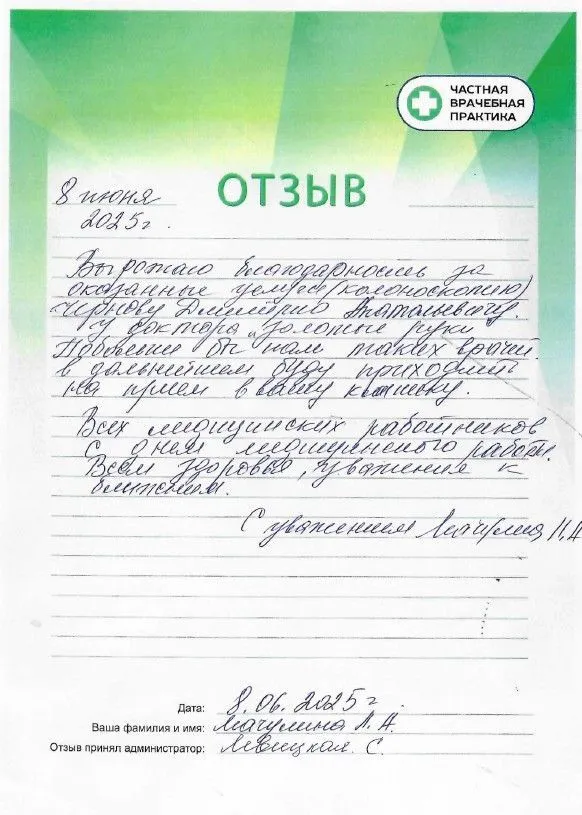 ЧАСТНАЯ
ВРАЧЕБНАЯ
ПРАКТИКА
ОТЗЫВ
8 июня
2025г.
Выражаю благодарность за
оказанные услуги (колоноскопию)
Чернову Дмитрию Анатольевичу.
У доктора "золотые руки
Побольше бы нам таких врачей.
в дальнейшем буду приходить
на прием в вашу клинику.
Всех медицинских работников
С днем медицинского работн.
Всем здоровья, уважения к
ближним.
С уважением Мачулина Л.А
Дата: 8.06.2025г
Ваша фамилия и имя: Мачулина Л.А.
Отзыв принял администратор: Левицкая. С.